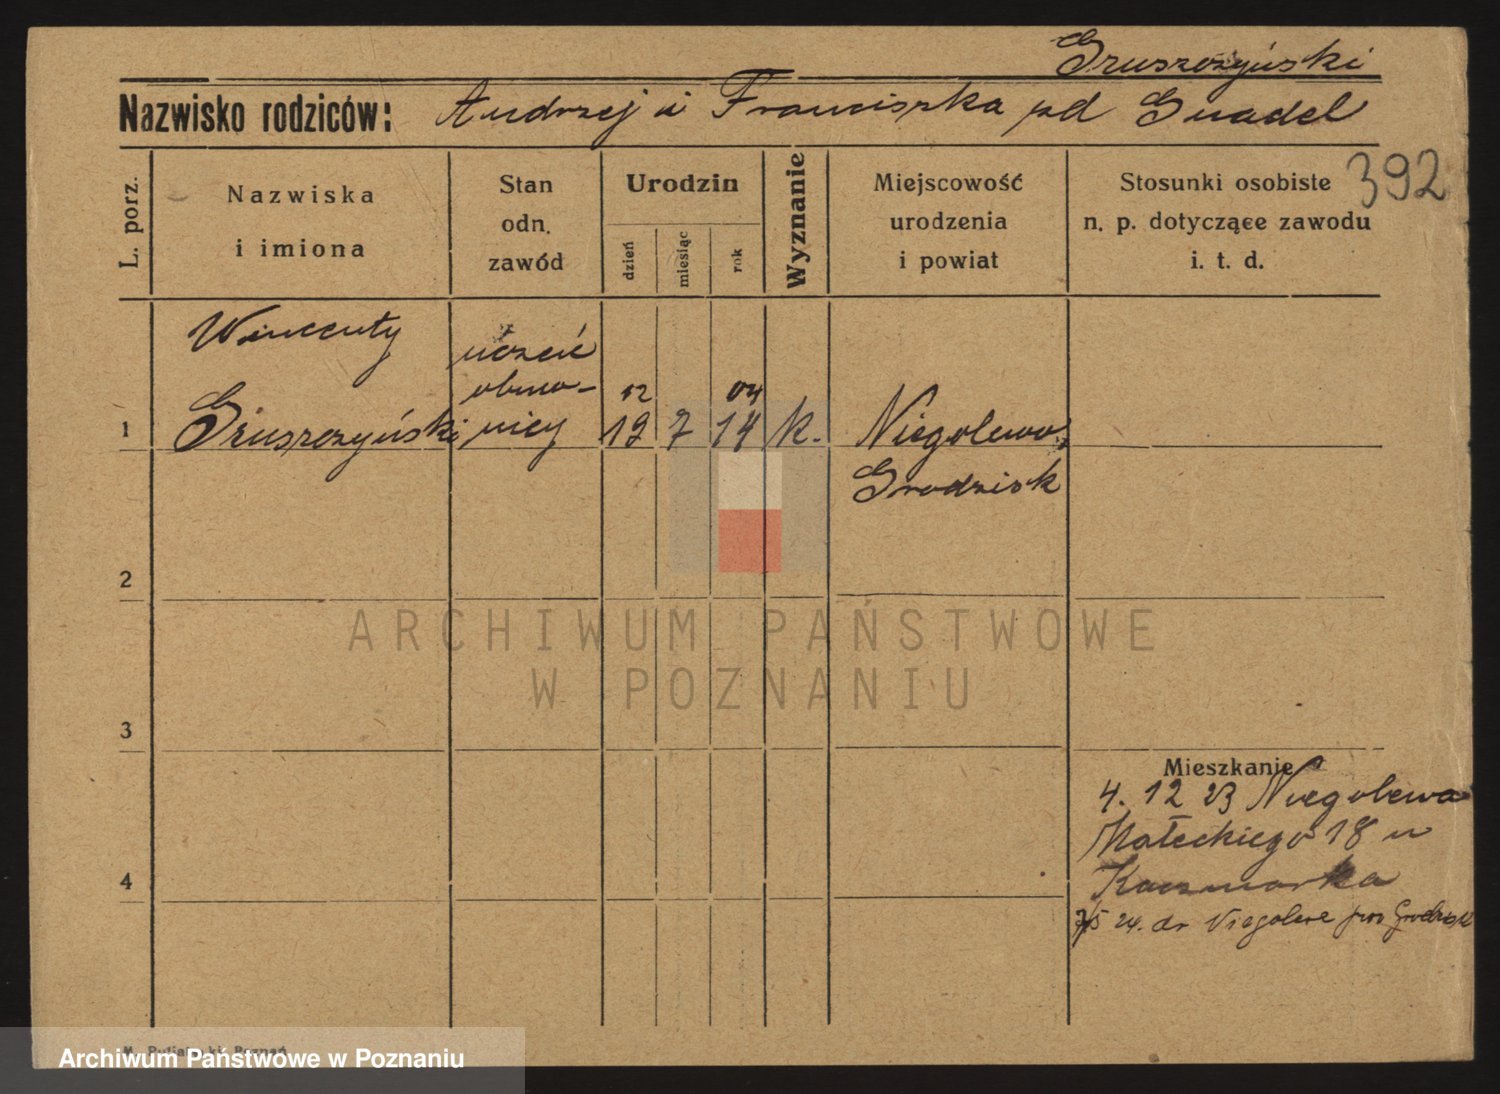 Gruszczyński
Nazwisko rodziców: Andrzej i Franciszka zd Gnadel
392
L. porz.
Nazwiska
i imiona
Stan
odn.
zawód
Urodzin
dzień
miesiąc
rok
Wyznanie
Miejscowość
urodzenia
i powiat
Stosunki osobiste
n. p. dotyczące zawodu
i. t. d.
Wincenty
uczeń
12 04
1 Gruszczyński 19 7 14 k. Niegolewo,
Grodzisk
2
ARCHIWUM PAŃSTWOWE
W POZNANIU
3
Mieszkanie
4. 12 23 Niegolewa
Małeckiego 18 u
4 Kaczmarka
7/5 24. do Niegolewa pow Grodzisk
Archiwum Państwowe w Poznaniu